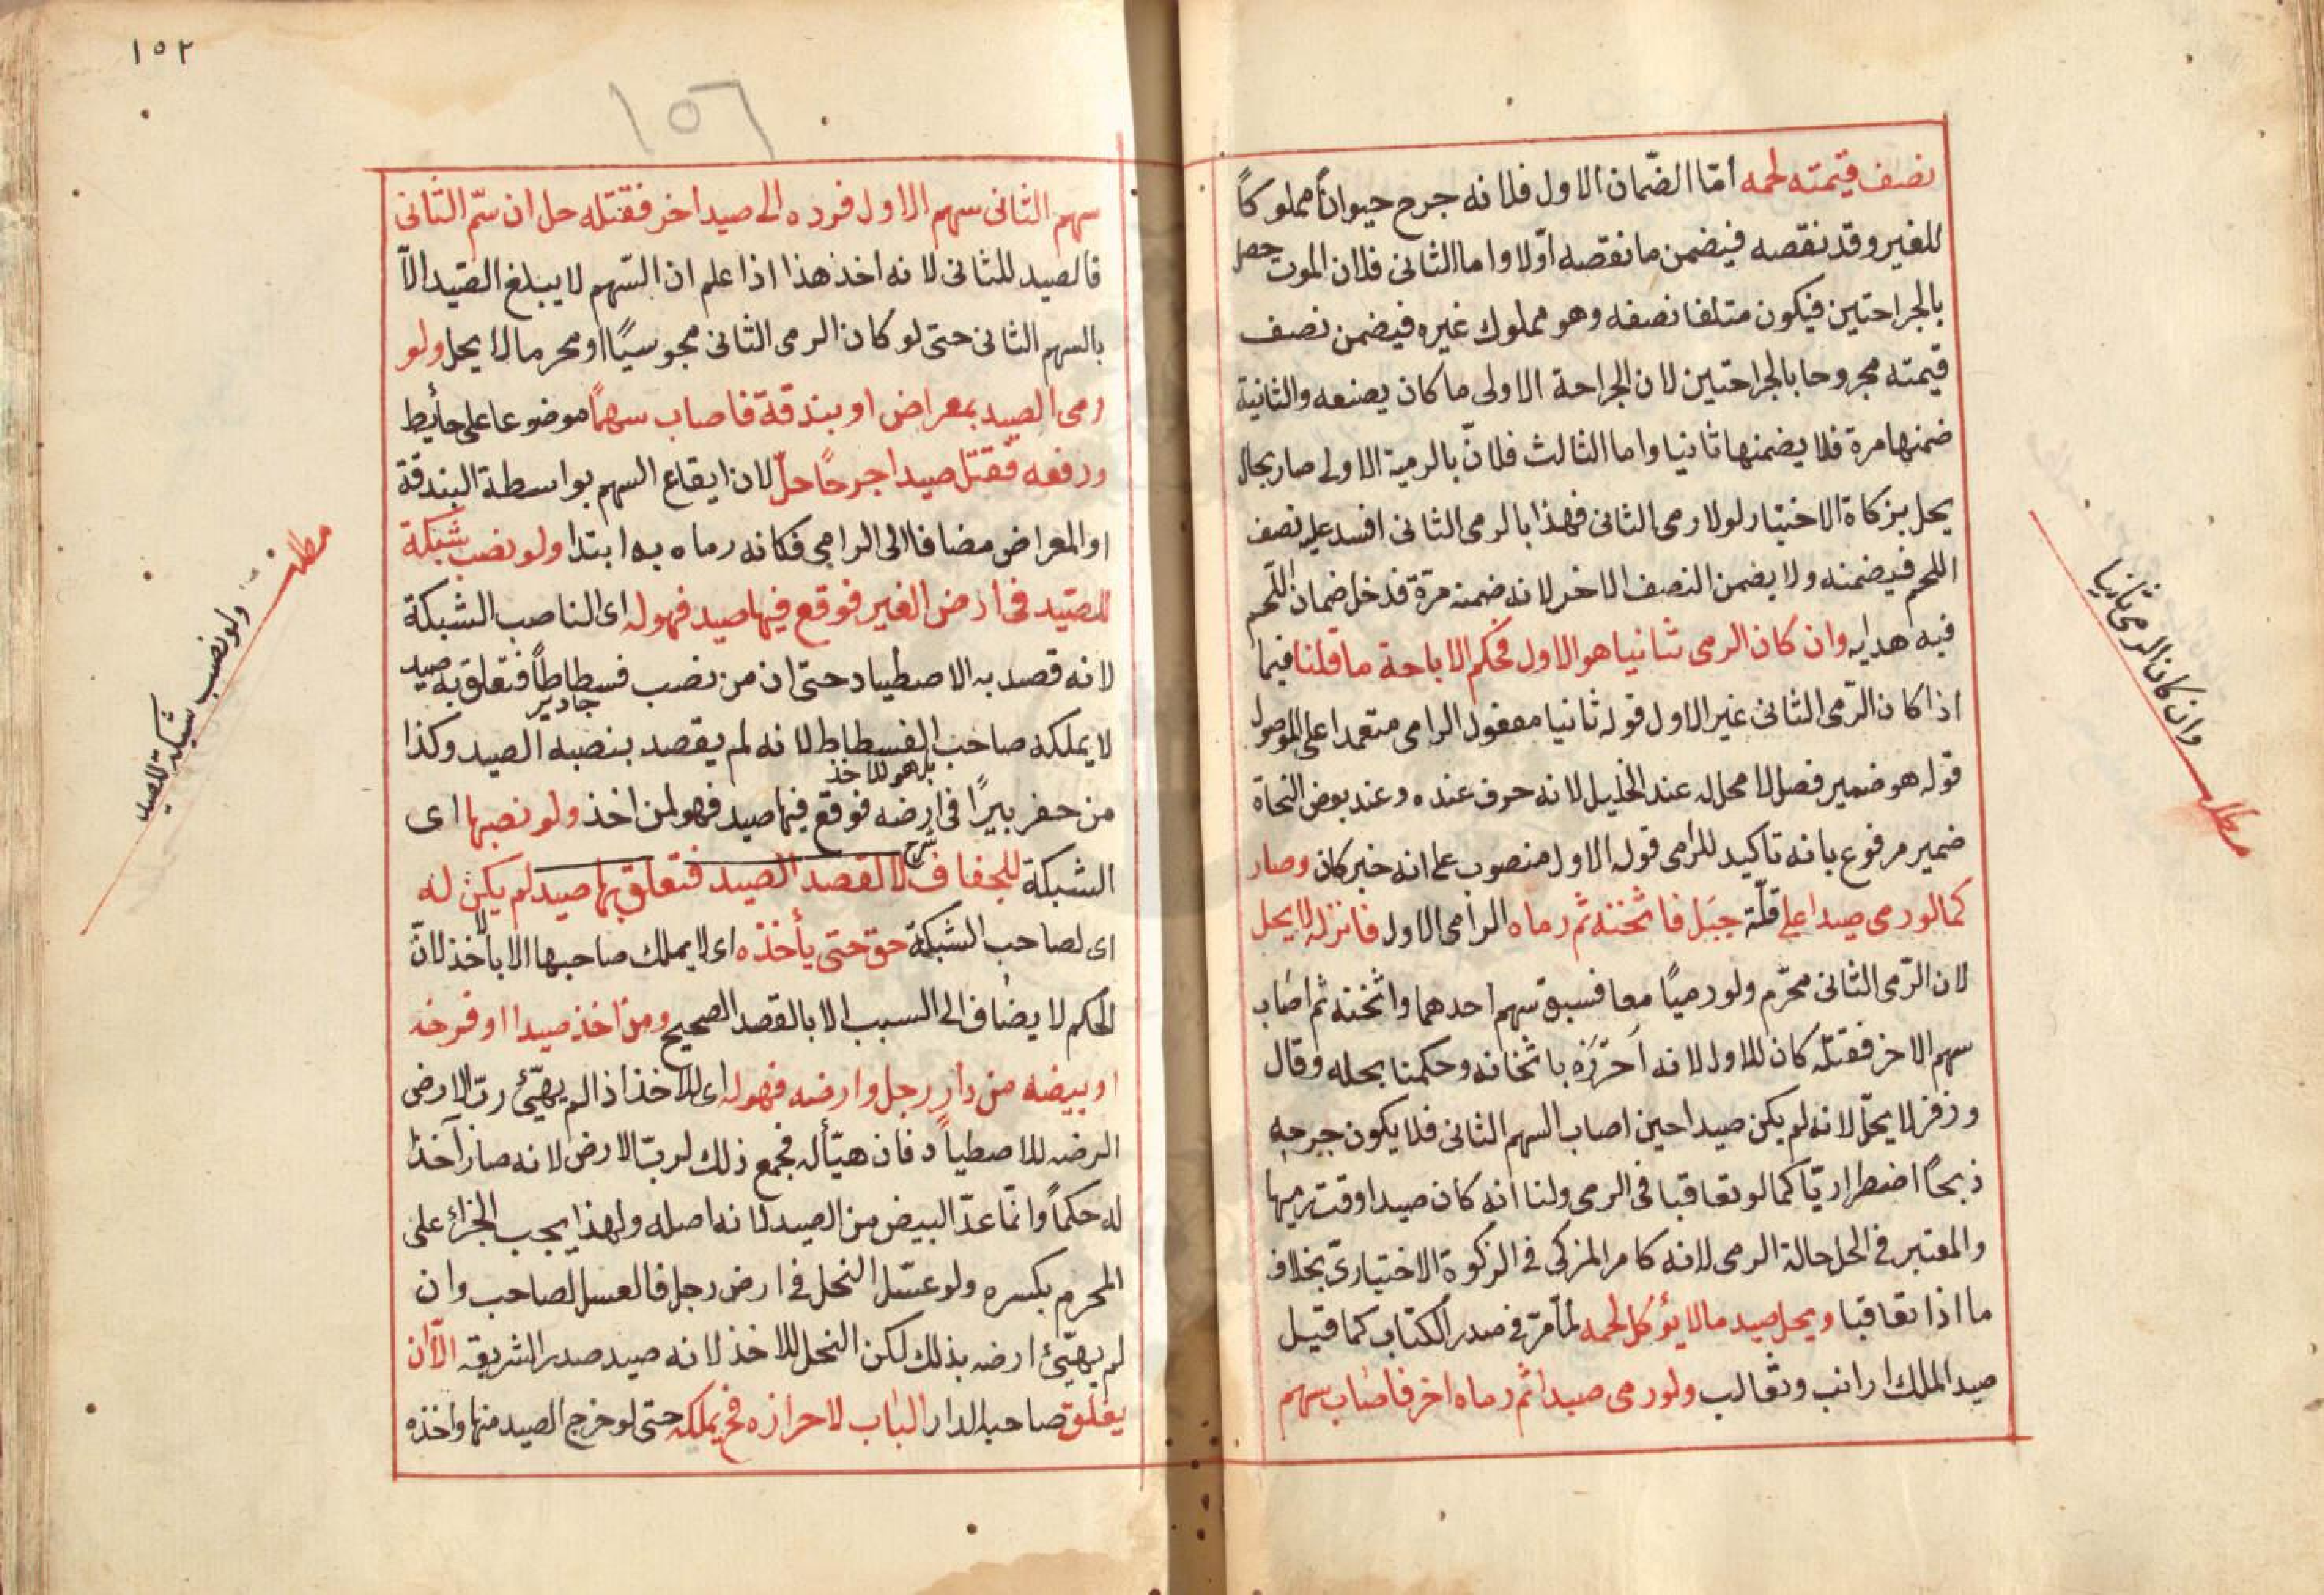 نصف قيمته لحمه امّا الضّمان الاول فلانه جرح حيواناً مملوكاً
للغير وقد نقصه فيضمن ما نقصه اوّلا واما الثانى فلان الموت حصل
بالجراحتين فيكون متلفا نصفه وهو مملوك غيره فيضمن نصف
قيمته مجروحا بالجراحتين لان الجراحة الاولى ما كان يصنعه والثانية
ضمنها مرة فلا يضمنها ثانيا واما الثالث فلانّ بالرمية الاولى صار بحال
يحل بزكاة الاختيار لولا رمى الثانى فهذا بالرمى الثانى افسد عليه نصف
اللحم فيضمنه ولا يضمن النصف الاخر لانه ضمنه مرّة فدخل ضمان اللّحم
فيه هدايه وان كان الرمى ثانيا هو الاول فحكم الاباحة ما قلنا فيما
اذا كان الرّمى الثانى غير الاول قوله ثانيا مفعول الرامى متعمدا على الموصول
قوله هو ضمير فصل لا محل له عند الخليل لانه حرف عنده وعند بعض النحاة
ضمير مرفوع بانه تاكيد للرامى قوله الاول منصوب على انه خبر كان وصار
كما لو رمى صيدا على قلّة جبَل فاثخنه ثم رماه الرامى الاول فانزله لا يحل
لان الرّمى الثانى محّرم ولو رميًا معا فسبق سهم احدهما واثخنه ثم اصاب
سهم الاخر فقتله كان للاول لانه اَحرَزَه باثخانه وحكمنا بحله وقال
وزفر لا يحلّ لانه لم يكن صيدا حين اصاب السهم الثانى فلا يكون جرحه
ذبحًا اضطراريّا كما لو تعاقبا فى الرمى ولنا انه كان صيدا وقت رميها
والمعتبر فى الحل حالة الرمى لانه كامر المزكى فى الزكوة الاختيارىّ بخلاف
ما اذا تعاقبا ويحل صيد ما لا يؤكل لحمه لما مرّ فى صدر الكتاب كما قيل
صيد الملك ارانب وثعالب ولو رمى صيدا ثم رماه اخر فاصاب سهم
وان كان الرمى ثانيا
مطلب
١٥٢
١٥٦
سهم الثانى سهم الاول فرده الى صيد اخر فقتله حل ان سمّ الثانى
فالصيد للثانى لانه اخذ هذا اذا علم ان السّهم لا يبلغ الصّيد الاّ
بالسهم الثانى حتى لو كان الرمى الثانى مجوسيًا او محرما لا يحل ولو
رمى الصيد بمعراض او بندقة فاصاب سهمًا موضوعا على حائط
ورفعه فقتل صيدا جرحًا حلّ لان ايقاع السهم بواسطة البندقة
او المعراض مضافا الى الرامى فكانه رماه به ابتدا ولو نصب شبكة
للصّيد فى ارض الغير فوقع فيها صيد فهو له اى الناصب الشبكة
لانه قصد به الاصطياد حتى ان من نصب فسطاطاً فتعلق به صيد
جادير
لا يملكه صاحب الفسطاط لانه لم يقصد بنصبه الصيد وكذا
بل هو للاخذ
من حفر بيرًا فى ارضه فوقع فيها صيد فهو لمن اخذ ولو نصبها اى
شرح
الشبكة للجفاف لا لقصد الصيد فتعلق بها صيد لم يكن له
اى لصاحب الشبكة حق حتى يأخذه اى لا يملك صاحبها الا بالاخذ لانّ
الحكم لا يضاف الى السبب الا بالقصد الصحيح ومن اخذ صيدا او فرخه
او بيضه من دار رجل وارضه فهو له اى للاخذ اذ الم يهيّئ ربّ الارض
ارضه للاصطياد فان هيّأ له فجمع ذلك لربّ الارض لانه صار آخذا
له حكماً وانّما عدّ البيض من الصيد لانه اصله ولهذا يجب الجزاء على
المحرم بكسره ولو عسّل النحل فى ارض رجل فالعسل لصاحب وان
لم يهيّئ ارضه بذلك لكن النحل للاخذ لانه صيد صدر الشريعه الاّ ان
يغلق صاحب الدار الباب لاحرازه فح يملكه حتى لو خرج الصيد منها واخذه
مطلب
ولو نصب شبكة للصيد